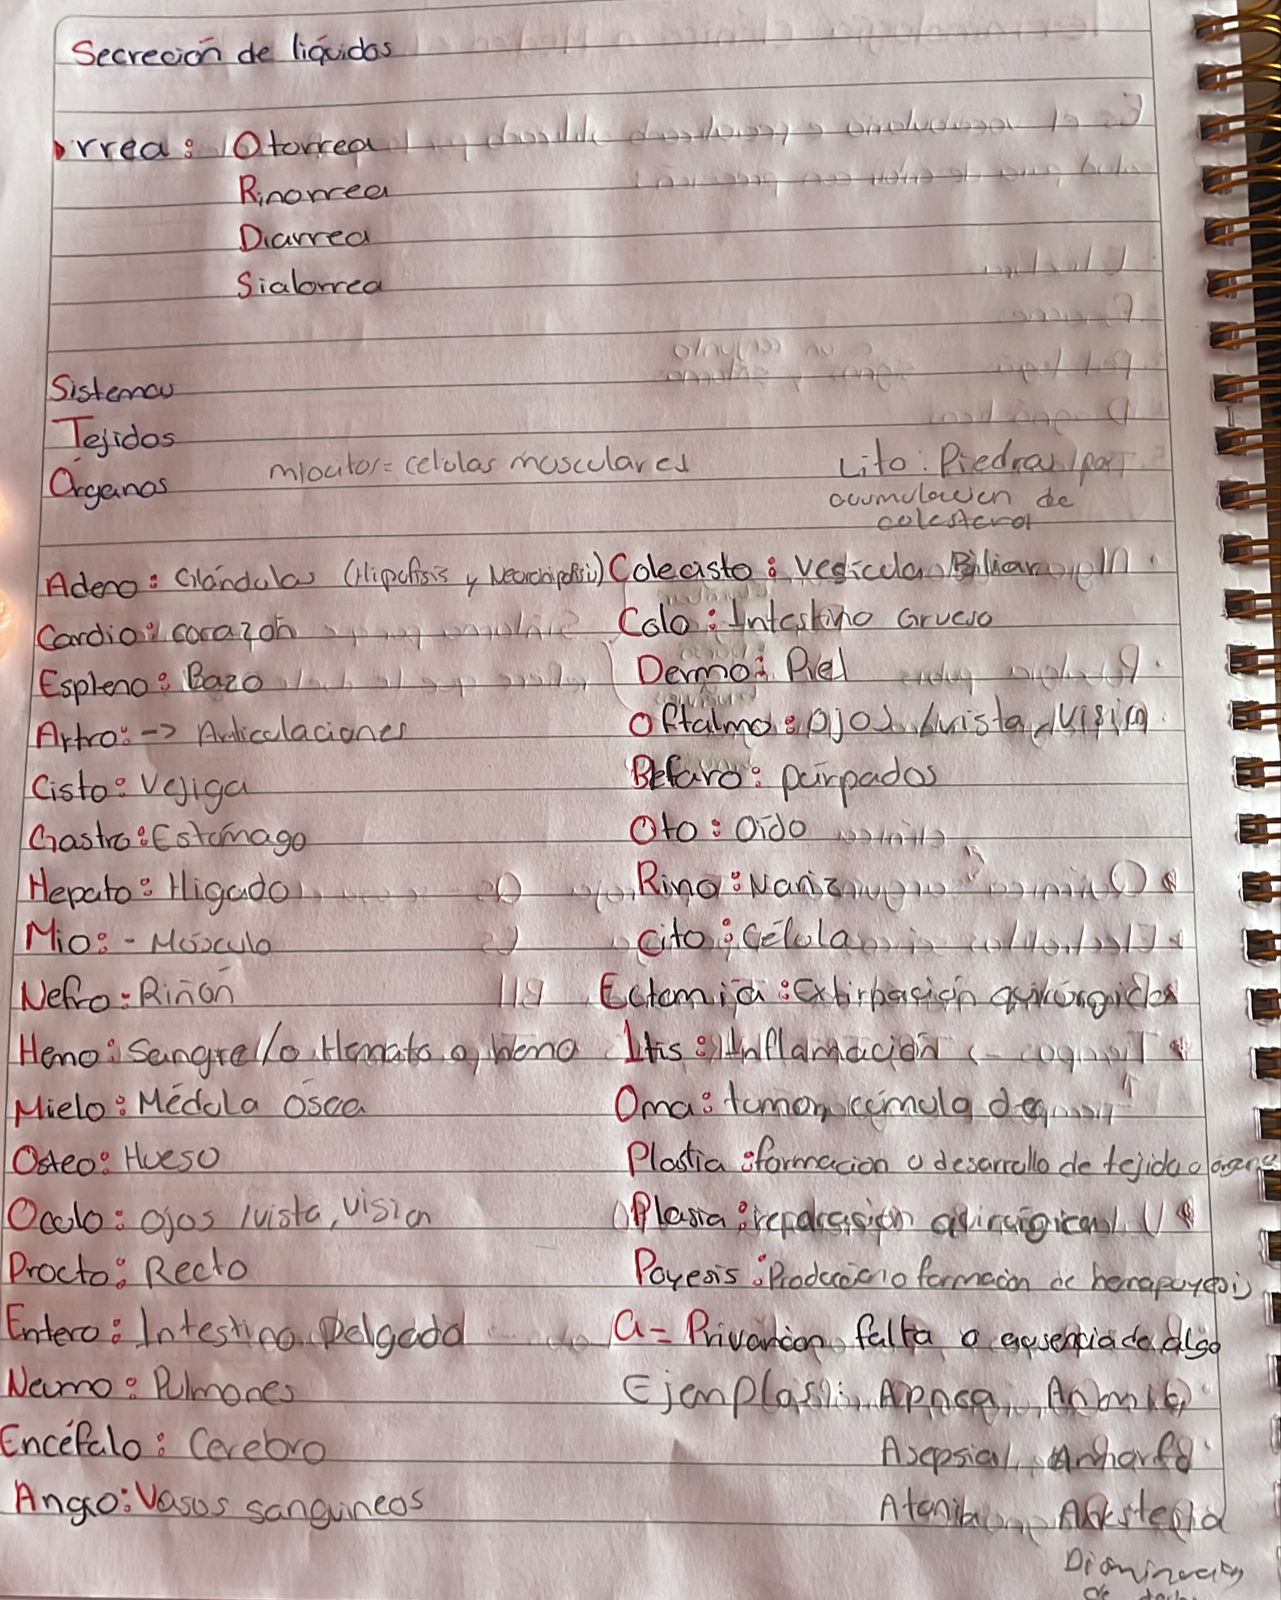 Secreción de liquidos
rrea: Otorrea
Rinorrea
Diarrea
Sialorrea
Sistemas
Tejidos
Órganos
miocitos= celulas musculares
Lito: Piedras por
acumulación de
colesterol
Adeno: Glándulas (Hipofisis y Neurohipofisis)
Cardio: corazón
Espleno: Bazo
Artro: -> Articulaciones
Cisto: Vejiga
Gastro: Estómago
Hepato: Higado
Mio: - Músculo
Nefro: Riñón
Hemo: Sangre/o Hemato o hemo
Mielo: Médula Osea
Osteo: Hueso
Oculo: ojos /vista, visión
Procto: Recto
Entero: Intestino Delgado
Neumo: Pulmones
Encéfalo: Cerebro
Angio: Vasos sanguineos
Colecisto: Vesicula Biliar
Colo: Intestino Grueso
Dermo: Piel
Oftalmo: Ojos /vista, visión
Blefaro: párpados
Oto: Oído
Rino: Nariz
Cito: Célula
Ectomia: Extirpación quirúrgica
Itis: Inflamación
Oma: tumor, cúmulo de
Plastia: formación o desarrollo de tejido o órgano
Plasia: reparación quirúrgica
Poyesis: Producción o formación de hemapoyesis
a= Privación falta o ausencia de algo
Ejemplos: Apnea,
Asepsia
Atonia
Disminución
de